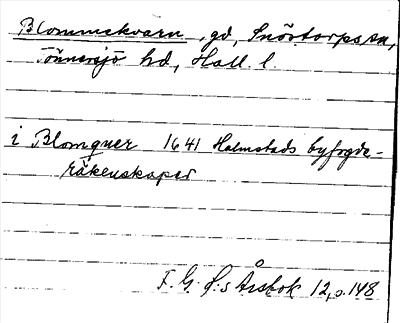 Blommekvarn, gd, Snöstorps sn,
Tönnersjö hd, Hall. l.
i Blomquer 1641 Halmstads byfogde-
räkenskaper
F. G. Ø:s Årsbok 12, s. 148